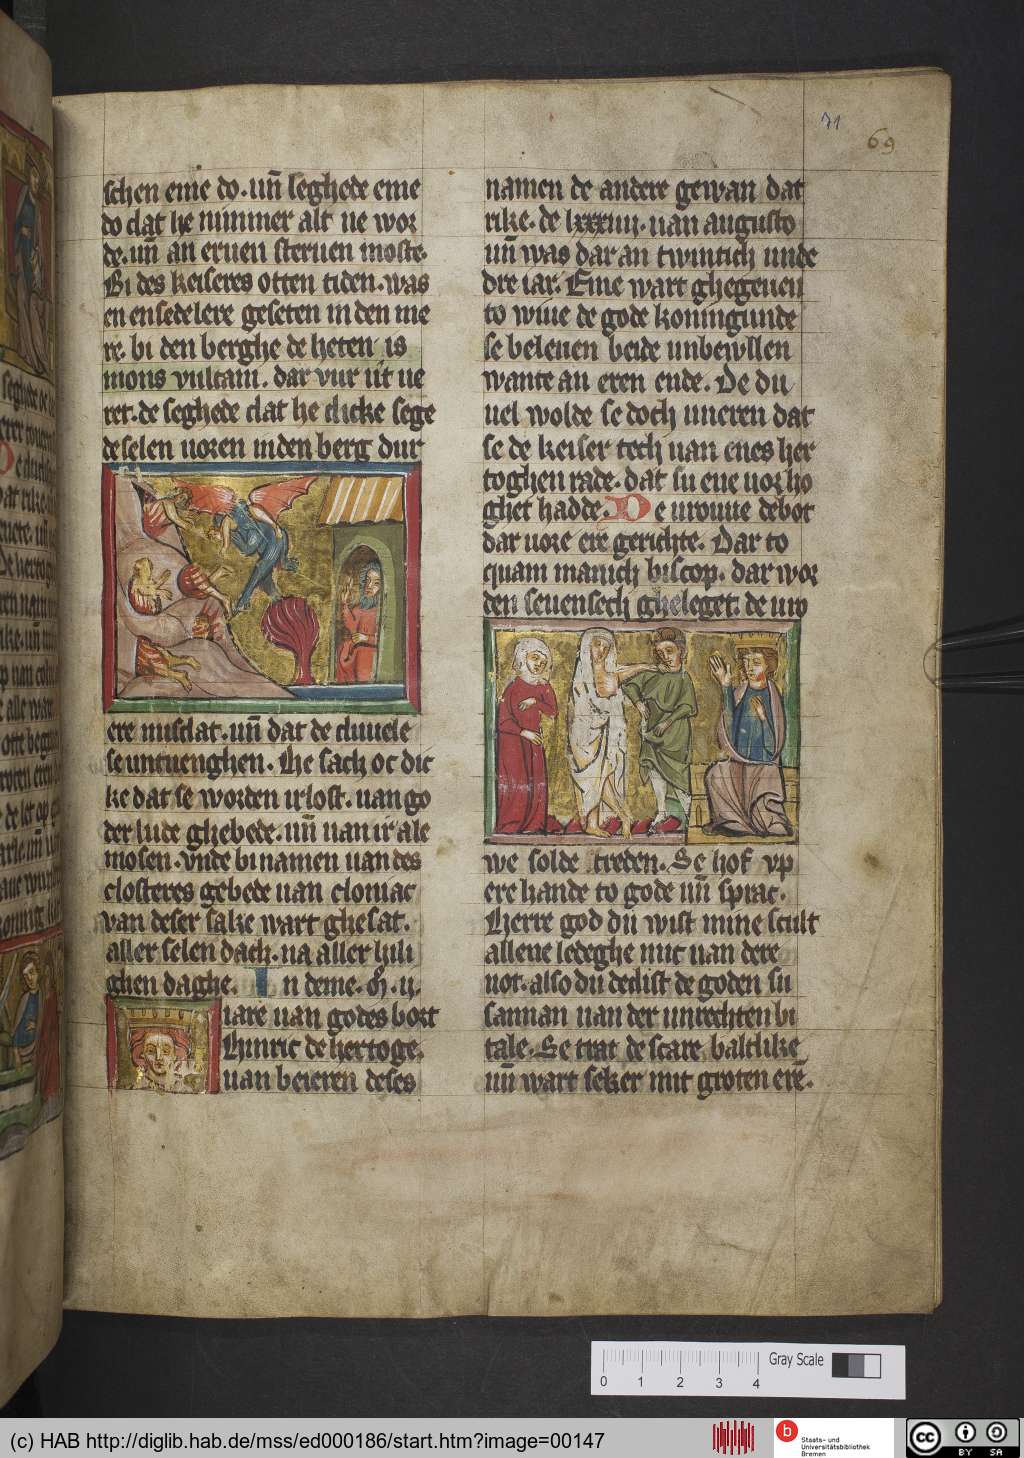 71
69
schen eme do. uñ seghede eme
do dat he nummer alt ne wor
de. uñ an eruen steruen moste.
Bi des keiseres otten tiden. was
en ensedelere geseten in den me
re. bi den berghe de heten is
mons vulcani. dar vur ut ue
ret. de seghede dat he dicke sege
de selen uoren in den berg dur
ere misdat. uñ dat de duuele
se untuenghen. He sach oc dic
ke dat se worden irlost. uan go
der lude ghebede. uñ uan ir ale
mosen. vnde bi namen uan des
closteres gebede uan cloniac
van deser sake wart ghesat.
aller selen dach. na aller hili
ghen daghe. In deme. M. ii.
iare uan godes bort
Hinric de hertoge.
uan beieren deses
namen de andere gewan dat
rike. de lxxxiiij. uan augusto
uñ was dar an twintich unde
dre iar. Eme wart ghegeuen
to wiue de gode koningunde
se beleuen beide unbewllen
wante an eren ende. De du
uel wolde se doch uneren dat
se de keiser tech uan enes her
toghen rade. dat su eue uor ho
ghet hadde. De urouue debot
dar uore ere gerichte. Dar to
quam manich biscop. dar wor
den seuen sech gheleget. de uro
we solde treden. Se hof vp
ere hande to gode uñ sprac.
Herre god du wist mine scult
allene ledeghe mic uan dere
not. also du dedist de goden su
sannan uan der unrechten bi
tale. Se trat de scare baltlike
uñ wart seker mit groten erē.
Gray Scale
0 1 2 3 4
(c) HAB http://diglib.hab.de/mss/ed000186/start.htm?image=00147
b
Staats- und
Universitätsbibliothek
Bremen
cc
BY SA